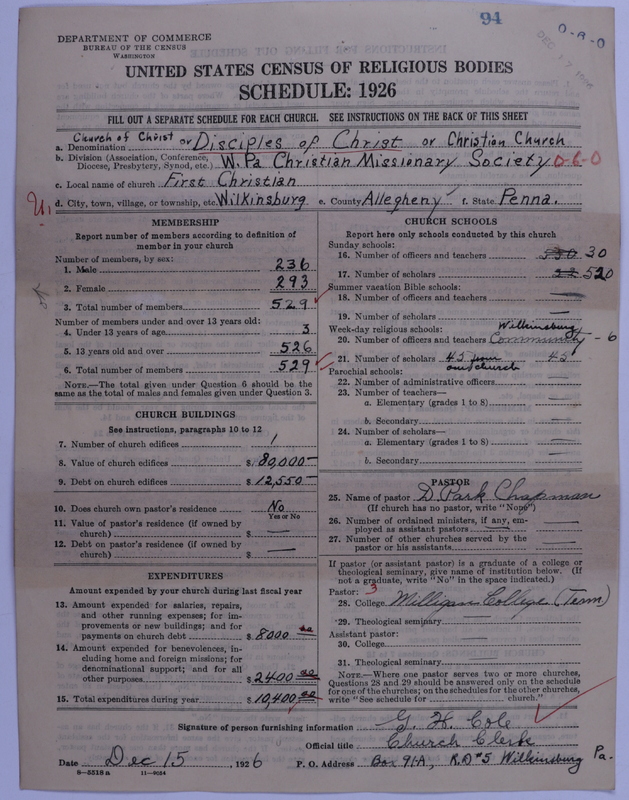 94
O-R-O
DEPARTMENT OF COMMERCE
BUREAU OF THE CENSUS
WASHINGTON
UNITED STATES CENSUS OF RELIGIOUS BODIES
SCHEDULE: 1926
FILL OUT A SEPARATE SCHEDULE FOR EACH CHURCH. SEE INSTRUCTIONS ON THE BACK OF THIS SHEET
a. Denomination Church of Christ or Disciples of Christ or Christian Church
b. Division (Association, Conference, Diocese, Presbytery, Synod, etc.) W. Pa Christian Missionary Society 0-6-0
c. Local name of church First Christian
d. City, town, village, or township, etc. Wilkinsburg e. County Allegheny f. State Penna.
MEMBERSHIP
Report number of members according to definition of
member in your church
Number of members, by sex:
1. Male 236
2. Female 293
3. Total number of members 529
Number of members under and over 13 years old:
4. Under 13 years of age 3
5. 13 years old and over 526
6. Total number of members 529
NOTE.—The total given under Question 6 should be
same as the total of males and females given under Question 3.
CHURCH BUILDINGS
See instructions, paragraphs 10 to 12
7. Number of church edifices 1
8. Value of church edifices $ 80,000—
9. Debt on church edifices $ 12,550—
10. Does church own pastor's residence No
Yes or No
11. Value of pastor's residence (if owned by
church) $ —
12. Debt on pastor's residence (if owned by
church) $ —
EXPENDITURES
Amount expended by your church during last fiscal year
13. Amount expended for salaries, repairs,
and other running expenses; for im-
provements or new buildings; and for
payments on church debt $ 8000 00
14. Amount expended for benevolences, in-
cluding home and foreign missions; for
denominational support; and for all
other purposes $ 2400 00
15. Total expenditures during year $ 10,400 00
CHURCH SCHOOLS
Report here only schools conducted by this church
Sunday schools:
16. Number of officers and teachers 30
17. Number of scholars 520
Summer vacation Bible schools:
18. Number of officers and teachers —
19. Number of scholars —
Week-day religious schools: Wilkinsburg
20. Number of officers and teachers Community - 6
21. Number of scholars 45 from our church 45
Parochial schools:
22. Number of administrative officers
23. Number of teachers—
a. Elementary (grades 1 to 8)
b. Secondary
24. Number of scholars—
a. Elementary (grades 1 to 8)
b. Secondary
PASTOR
25. Name of pastor D. Park Chapman
(If church has no pastor, write "None")
26. Number of ordained ministers, if any, em-
ployed as assistant pastors
27. Number of other churches served by the
pastor or his assistants
If pastor (or assistant pastor) is a graduate of a college or
theological seminary, give name of institution below. (If
not a graduate, write "No" in the space indicated.)
Pastor: 3
28. College Milligan College (Tenn)
29. Theological seminary
Assistant pastor:
30. College
31. Theological seminary
NOTE.—Where one pastor serves two or more churches,
Questions 28 and 29 should be answered only on the schedule
for one of the churches; on the schedules for the other churches,
write "See schedule for church."
Signature of person furnishing information G H Cole
Official title Church Clerk
Date Dec 15, 1926 P. O. Address Box 91-A, R.D #5 Wilkinsburg Pa-
8—5518 a 11—9054